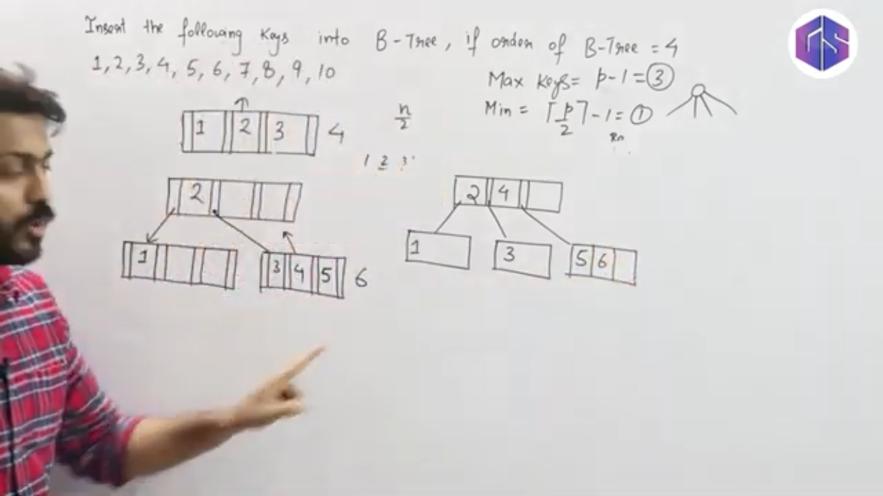 Insert the following Keys into B-Tree, if order of B-Tree = 4
1, 2, 3, 4, 5, 6, 7, 8, 9, 10
Max Keys = P-1 = 3
Min = ⌈P/2⌉ -1 = 1
1 2 3 4
n/2
1 2 3
2
1
3 4 5 6
2 4
1
3
5 6